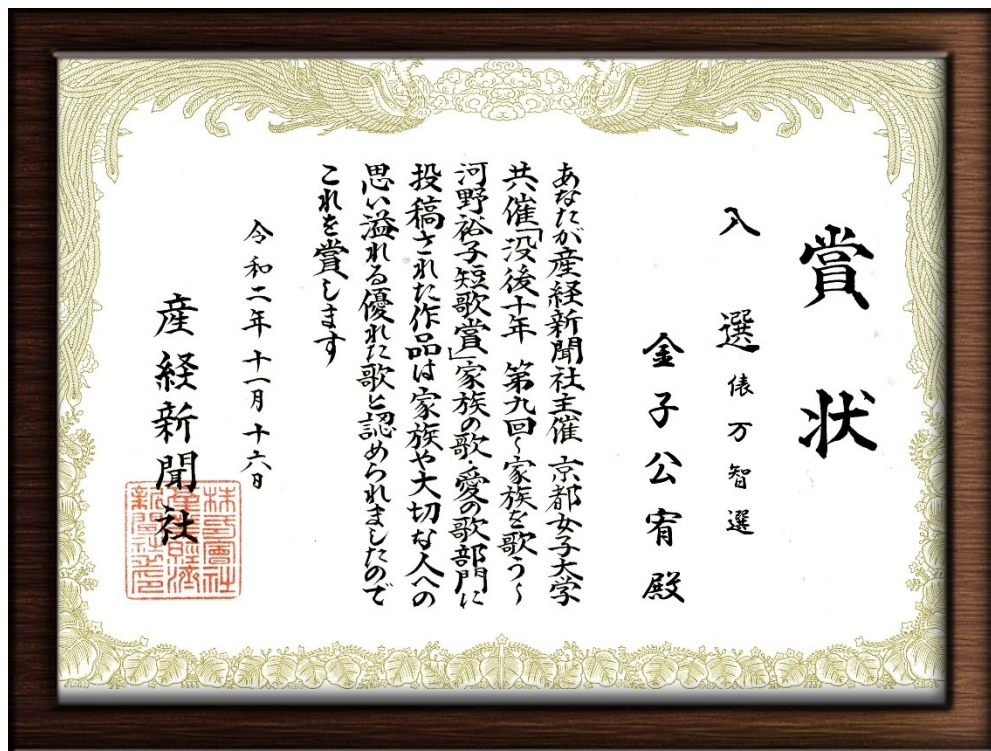 賞状
入選 俵万智選
金子公宥殿
あなたが産経新聞社主催 京都女子大学
共催「没後十年 第九回〜家族を歌う〜
河野裕子短歌賞」家族の歌・愛の歌部門に
投稿された作品は家族や大切な人への
思い溢れる優れた歌と認められましたので
これを賞します
令和二年十一月十六日
産経新聞社